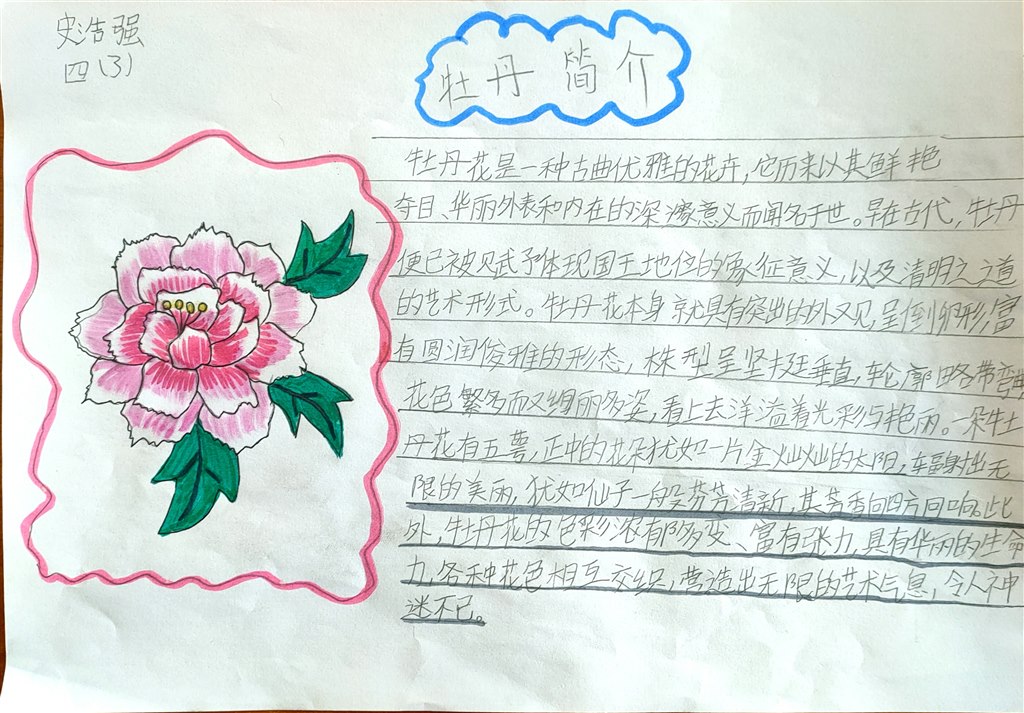 史浩强
四(3)
牡丹简介
牡丹花是一种古典优雅的花卉,它历来以其鲜艳
夺目、华丽外表和内在的深邃意义而闻名于世。早在古代,牡丹
便已被赋予体现国王地位的象征意义,以及清明之道
的艺术形式。牡丹花本身就具有突出的外观,呈倒卵形,富
有圆润俊雅的形态,株型呈坚挺垂直,轮廓略带弯曲
花色繁多而又绚丽多姿,看上去洋溢着光彩与艳丽。一朵牡
丹花有五萼,正中的花朵犹如一片金灿灿的太阳,辐射出无
限的美丽,犹如仙子一般芬芳清新,其芳香向四方回响。此
外,牡丹花的色彩浓郁多变、富有张力,具有华丽的生命
力,各种花色相互交织,营造出无限的艺术气息,令人神
迷不已。